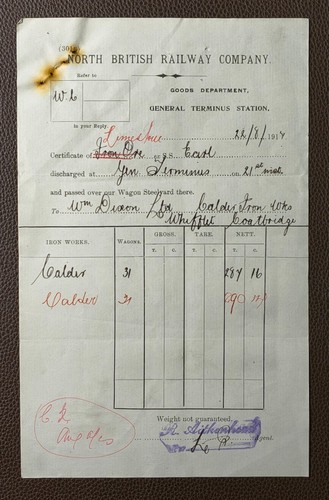 NORTH BRITISH RAILWAY COMPANY.
Refer to
W.L
GOODS DEPARTMENT,
GENERAL TERMINUS STATION,
in your Reply.
Limestone
22/8/1917
Certificate of Iron Ore ex S.S. Earl
discharged at Gen Terminus on 21st inst.
and passed over our Wagon Steelyard there.
To Wm Dixon Ltd Calder Iron Wks
Whifflet Coatbridge
IRON WORKS. WAGONS. GROSS. TARE. NETT.
T. C. T. C. T. C.
Calder 31 287 16
Calder 31 290
Weight not guaranteed.
R. Aitkenhead
Agent.